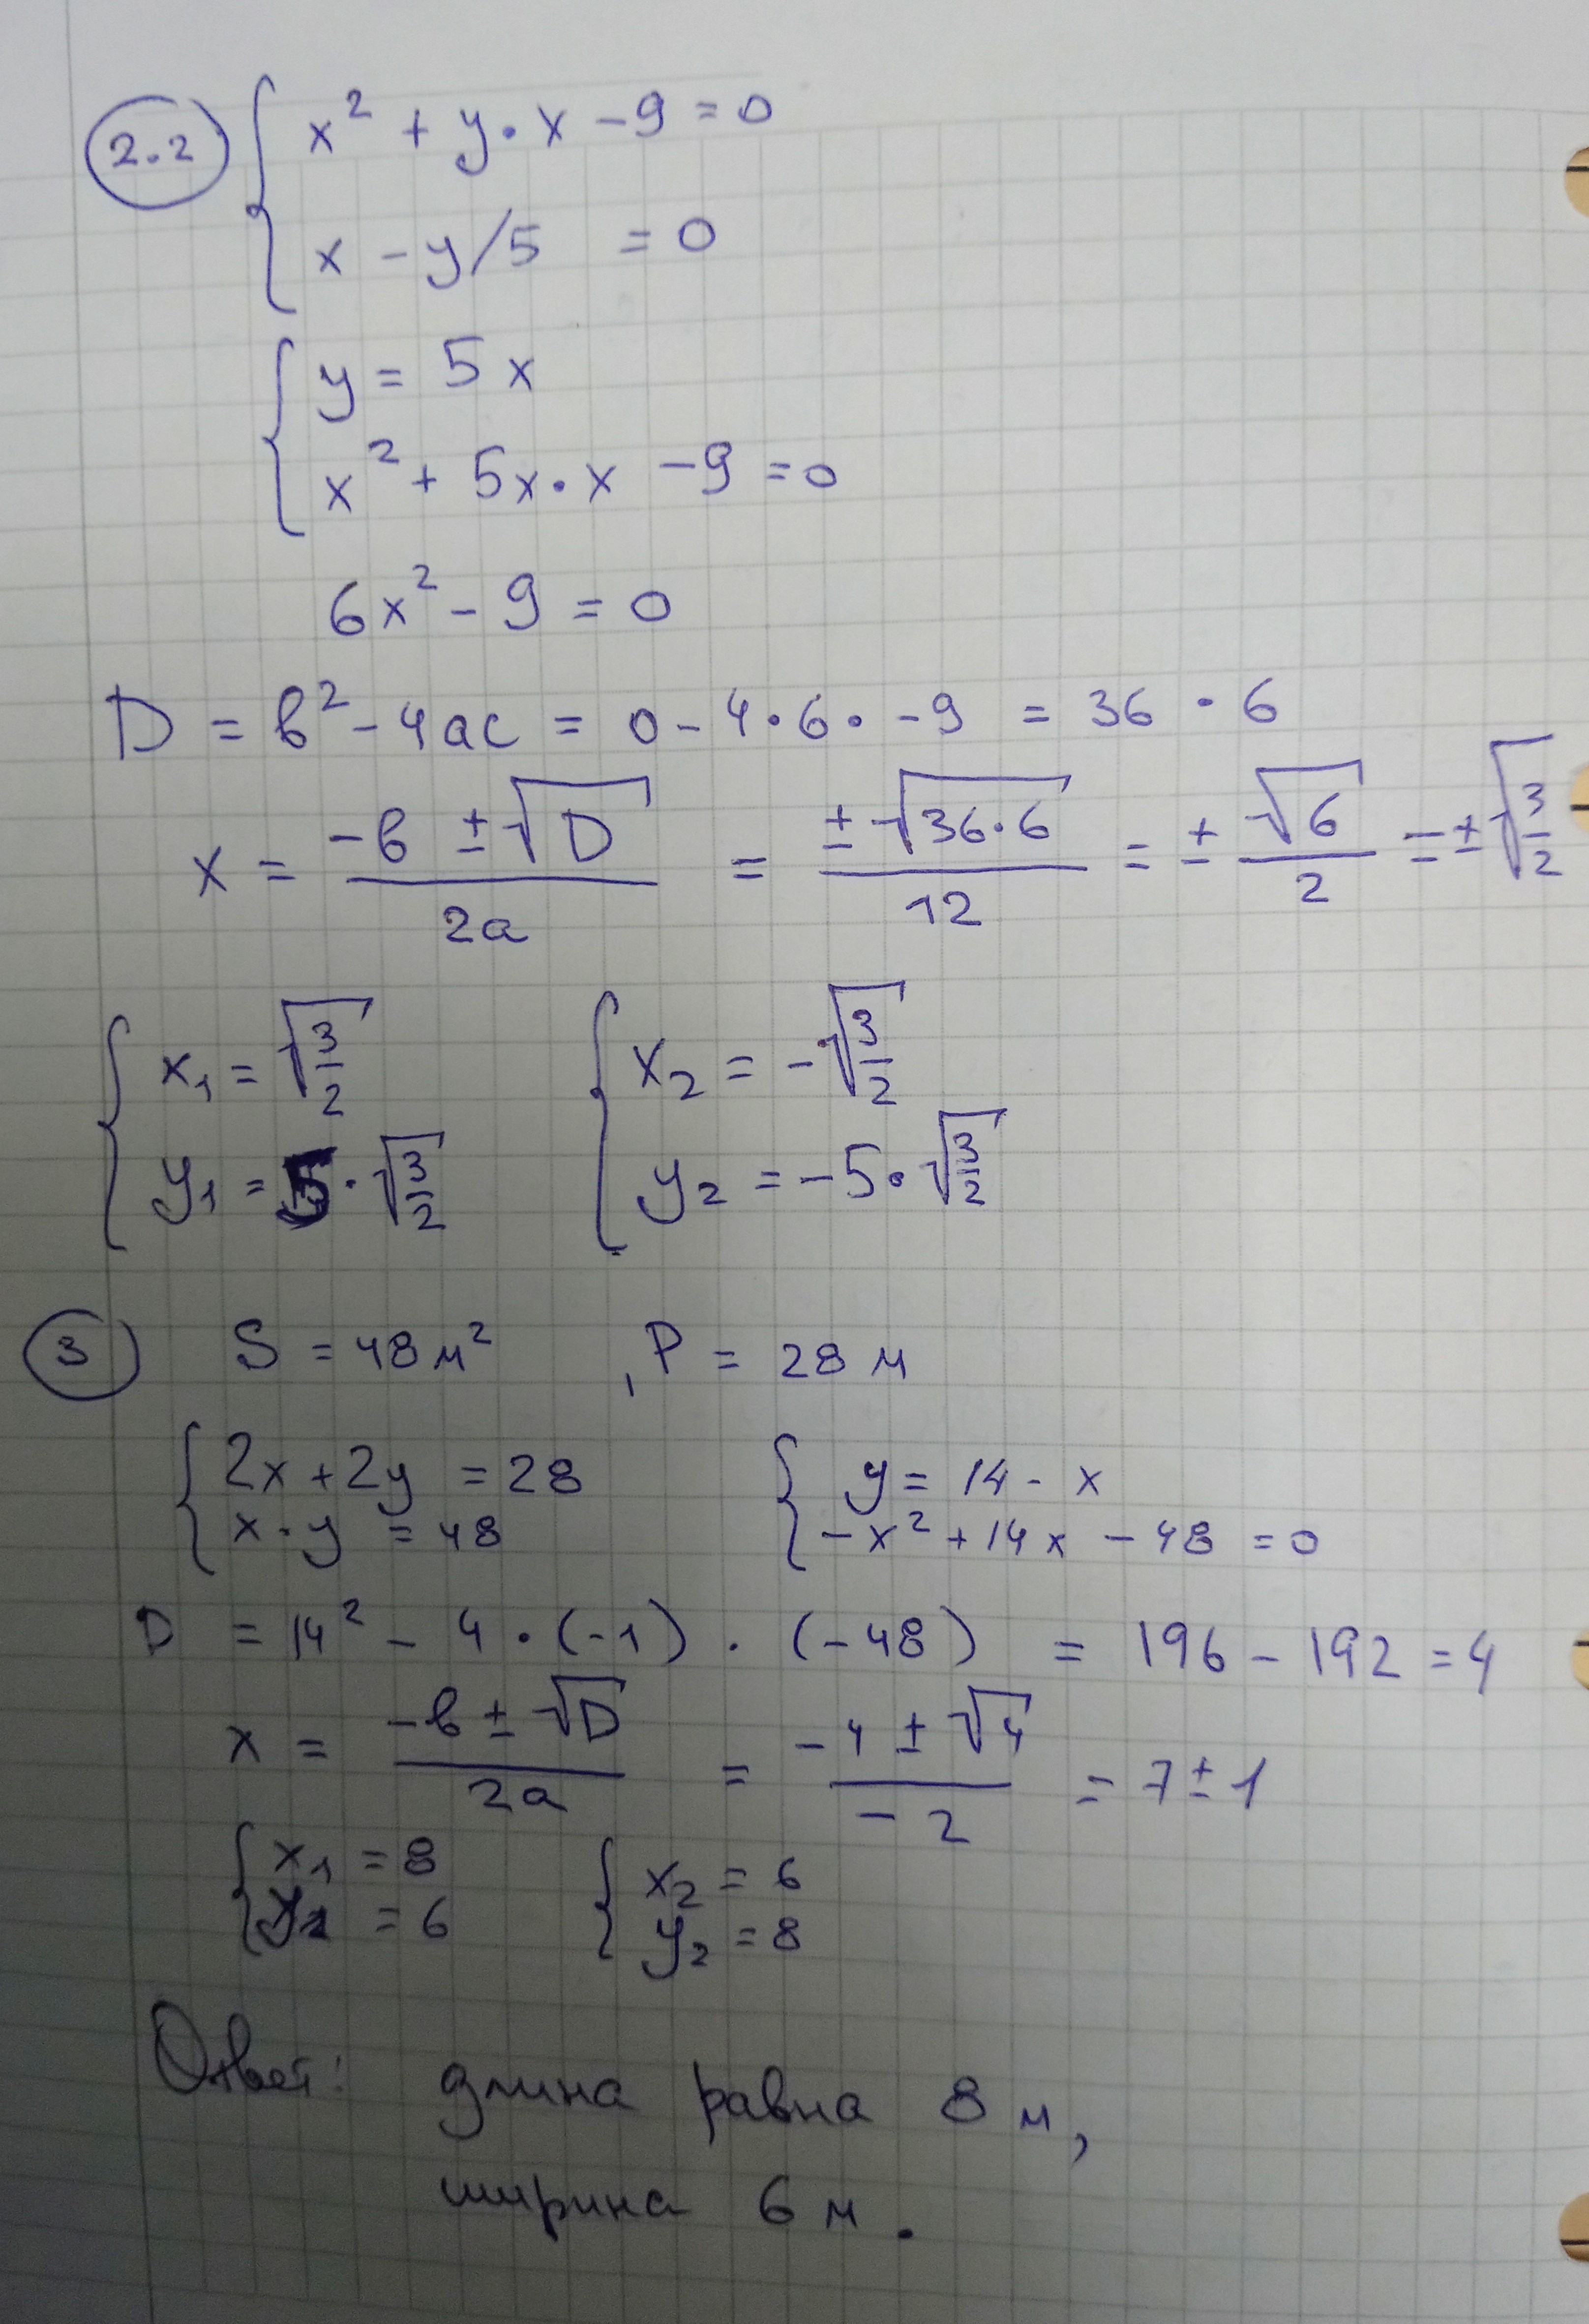 2.2 { x² + y · x - 9 = 0
x - y/5 = 0
{ y = 5x
x² + 5x · x - 9 = 0
6x² - 9 = 0
D = b² - 4ac = 0 - 4 · 6 · -9 = 36 · 6
x = (-b ± √D) / 2a = ± √(36·6) / 12 = ± √6 / 2 = ± √(3/2)
{ x₁ = √(3/2) { x₂ = -√(3/2)
y₁ = 5 · √(3/2) y₂ = -5 · √(3/2)
3 S = 48 м² , P = 28 м
{ 2x + 2y = 28 { y = 14 - x
x · y = 48 -x² + 14x - 48 = 0
D = 14² - 4 · (-1) · (-48) = 196 - 192 = 4
x = (-b ± √D) / 2a = (-4 ± √4) / -2 = 7 ± 1
{ x₁ = 8 { x₂ = 6
y₁ = 6 y₂ = 8
Ответ: длина равна 8 м,
ширина 6 м.